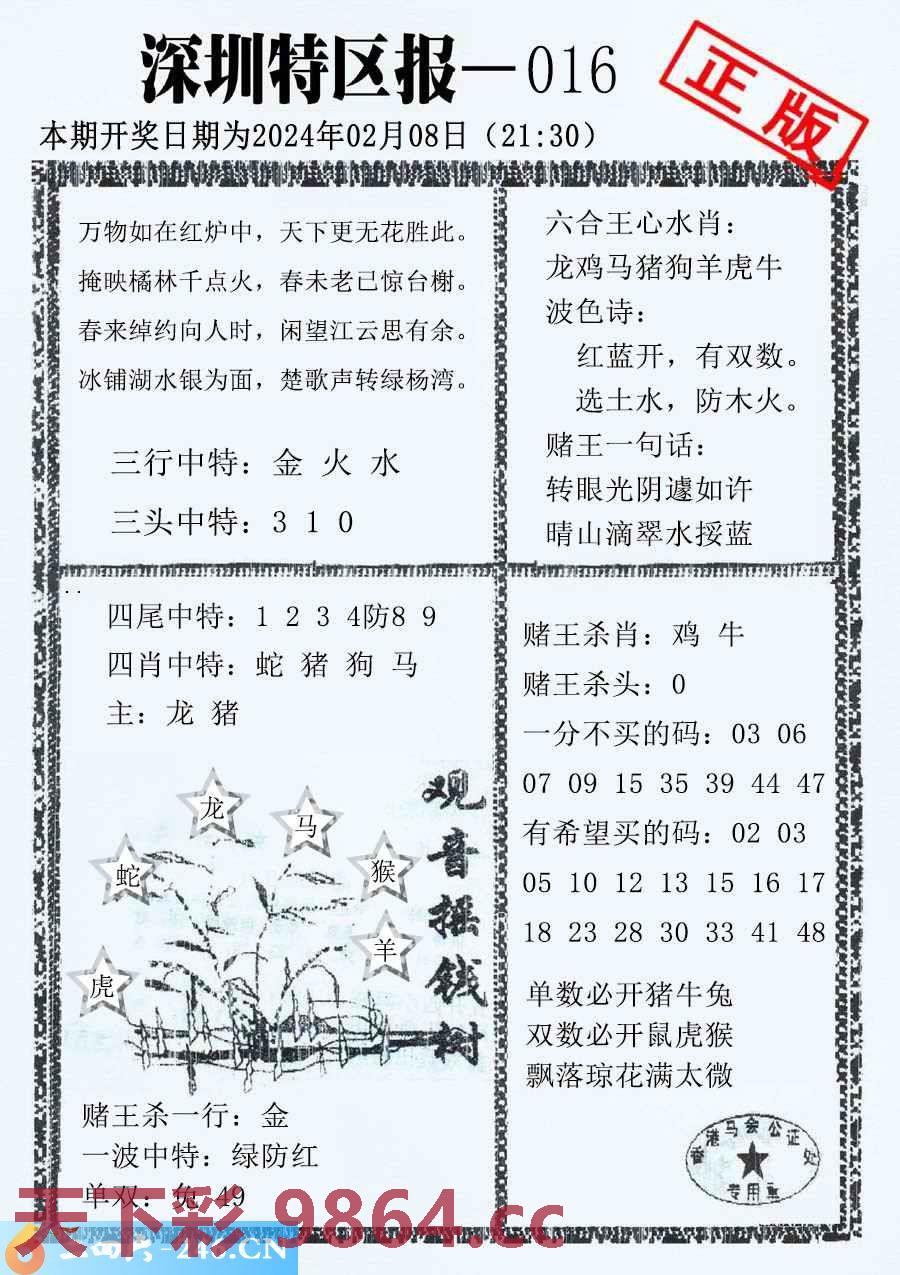 深圳特区报—016
正版
本期开奖日期为2024年02月08日（21:30）
万物如在红炉中，天下更无花胜此。
掩映橘林千点火，春未老已惊台榭。
春来绰约向人时，闲望江云思有余。
冰铺湖水银为面，楚歌声转绿杨湾。
三行中特：金 火 水
三头中特：3 1 0
六合王心水肖：
龙鸡马猪狗羊虎牛
波色诗：
红蓝开，有双数。
选土水，防木火。
赌王一句话：
转眼光阴遽如许
晴山滴翠水挼蓝
四尾中特：1 2 3 4防8 9
四肖中特：蛇 猪 狗 马
主：龙 猪
观音摇钱树
龙
马
蛇
猴
羊
虎
赌王杀一行：金
一波中特：绿防红
单双：兔 49
赌王杀肖：鸡 牛
赌王杀头：0
一分不买的码：03 06
07 09 15 35 39 44 47
有希望买的码：02 03
05 10 12 13 15 16 17
18 23 28 30 33 41 48
单数必开猪牛兔
双数必开鼠虎猴
飘落琼花满太微
香港马会公证处
专用章
天下彩.9864.cc
-246.CN